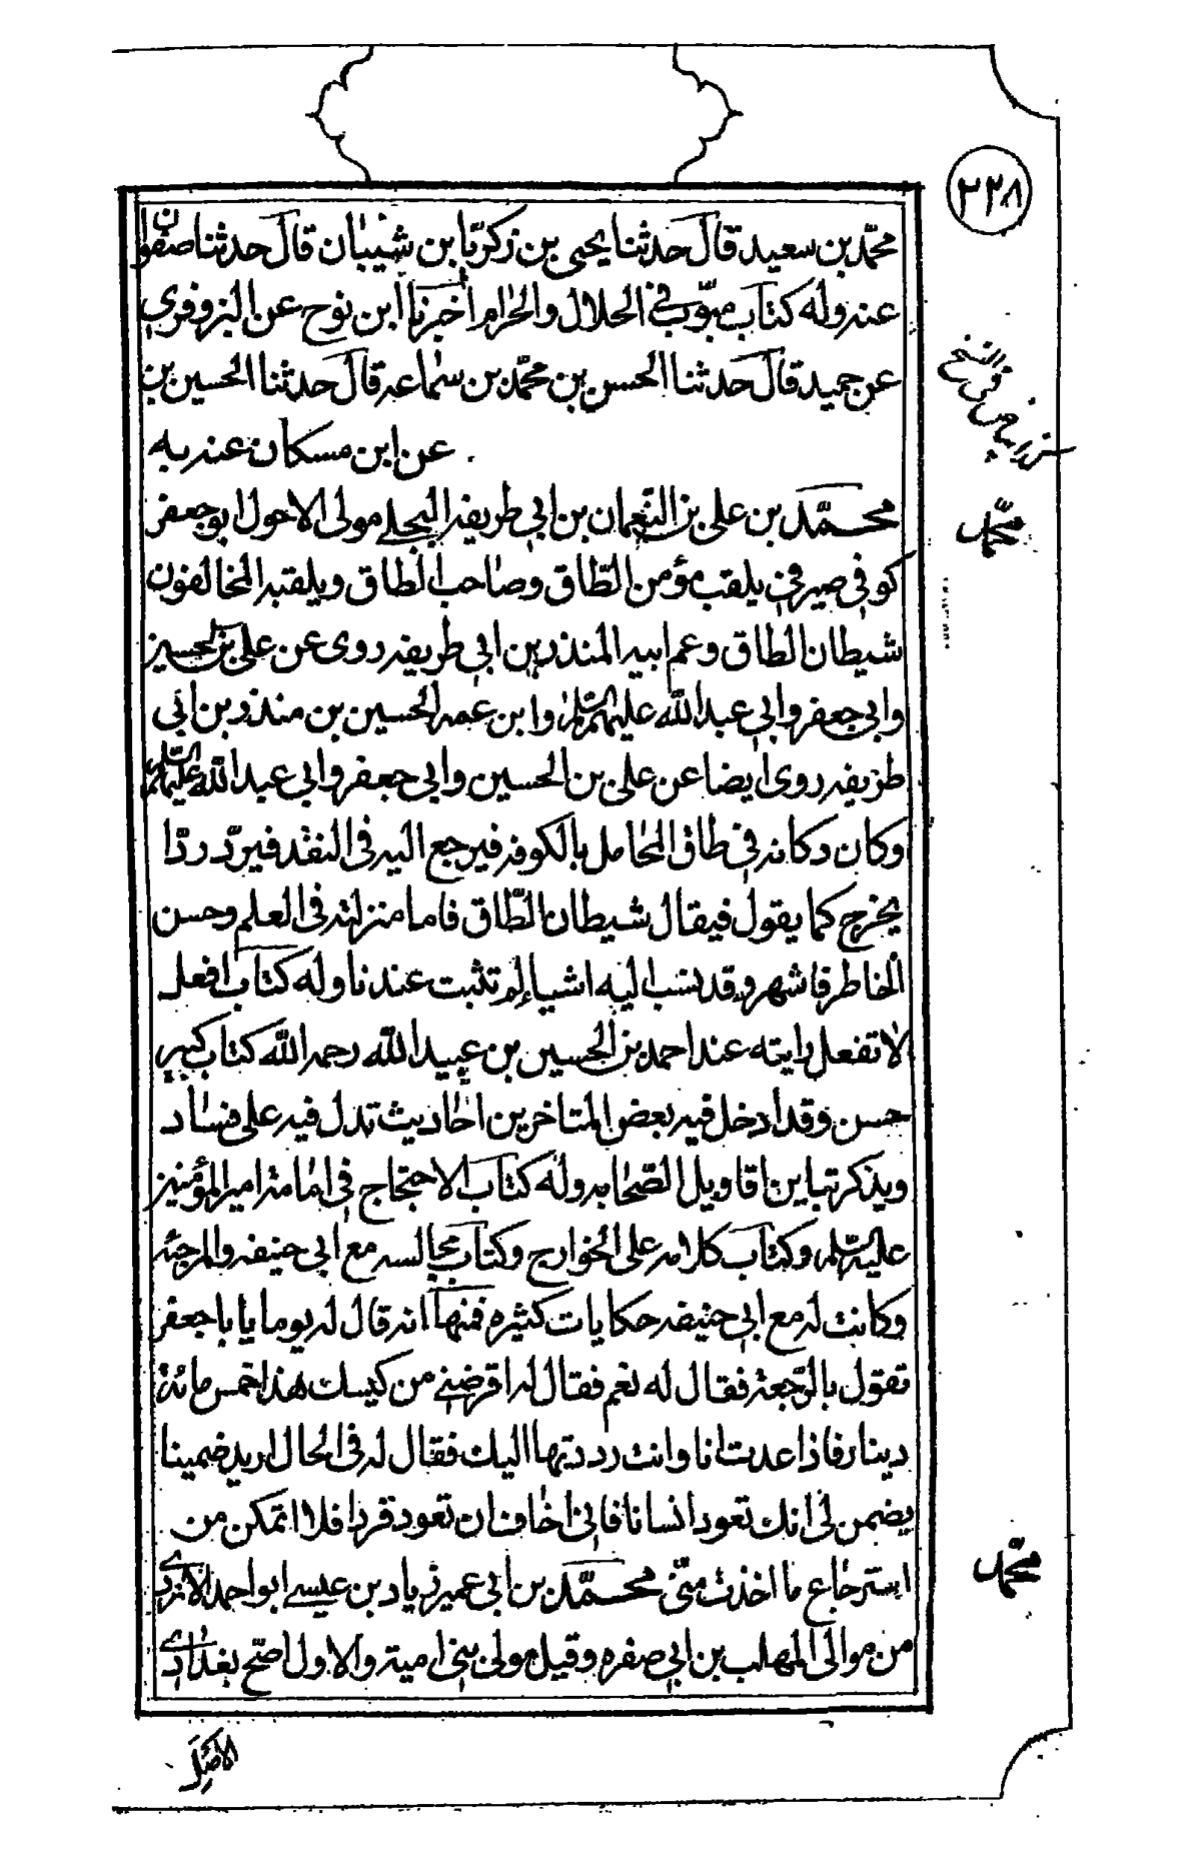 ٢٢٨
محمّد بن سعيد قال حدثنا يحيى بن زكريّا بن شيبان قال حدثنا صفوان
عنه وله كتاب مبوّب في الحلال والحرام أخبرنا ابن نوح عن البزوفرى
عن حميد قال حدثنا الحسن بن محمّد بن سماعه قال حدثنا الحسين بن
عن ابن مسكان عنه به
محمّد بن على بن النّعمان بن ابي طريفه البجلى مولى الاحول ابو جعفر
كوفي صيرفي يلقب مؤمن الطّاق وصاحب الطاق ويلقبه المخالفون
شيطان الطاق وعم ابيه المنذر بن ابي طريفه روى عن على بن الحسين
وابي جعفر وابي عبد الله عليهم السّلم وابن عمه الحسين بن منذر بن ابي
طريفه روى ايضا عن على بن الحسين وابي جعفر وابي عبد الله عليهم السّلم
وكان دكانه في طاق المحامل بالكوفه فيرجع اليه في النقد فيردّ ردّا
يخرج كما يقول فيقال شيطان الطّاق فاما منزلته في العلم وحسن
الخاطر فاشهر وقد نسب اليه اشياء لم تثبت عندنا وله كتاب افعل
لا تفعل رايته عند احمد بن الحسين بن عبيد الله رحمه الله كتاب كبير
حسن وقد ادخل فيه بعض المتاخرين احاديث تدل فيه على فساد
ويذكر تباين اقاويل الصّحابه وله كتاب الاحتجاج في امامة امير المؤمنين
عليه السّلم وكتاب كلامه على الخوارج وكتاب مجالسه مع ابي حنيفه والمرجئه
وكانت له مع ابي حنيفه حكايات كثيره فمنها انه قال له يوما يا باجعفر
تقول بالرّجعة فقال له نعم فقال له اقرضني من كيسك هذا خمس مائة
دينار فاذا عدت انا وانت رددتها اليك فقال له في الحال اريد ضمينا
يضمن لي انك تعود انسانا فاني اخاف ان تعود قردا فلا اتمكن من
استرجاع ما اخذت منّي محمّد بن ابي عمير زياد بن عيسى ابو احمد الازدي
من موالى المهلب بن ابي صفره وقيل مولى بني امية والاول اصّح بغدادي
محمّد
محمّد
الاصل